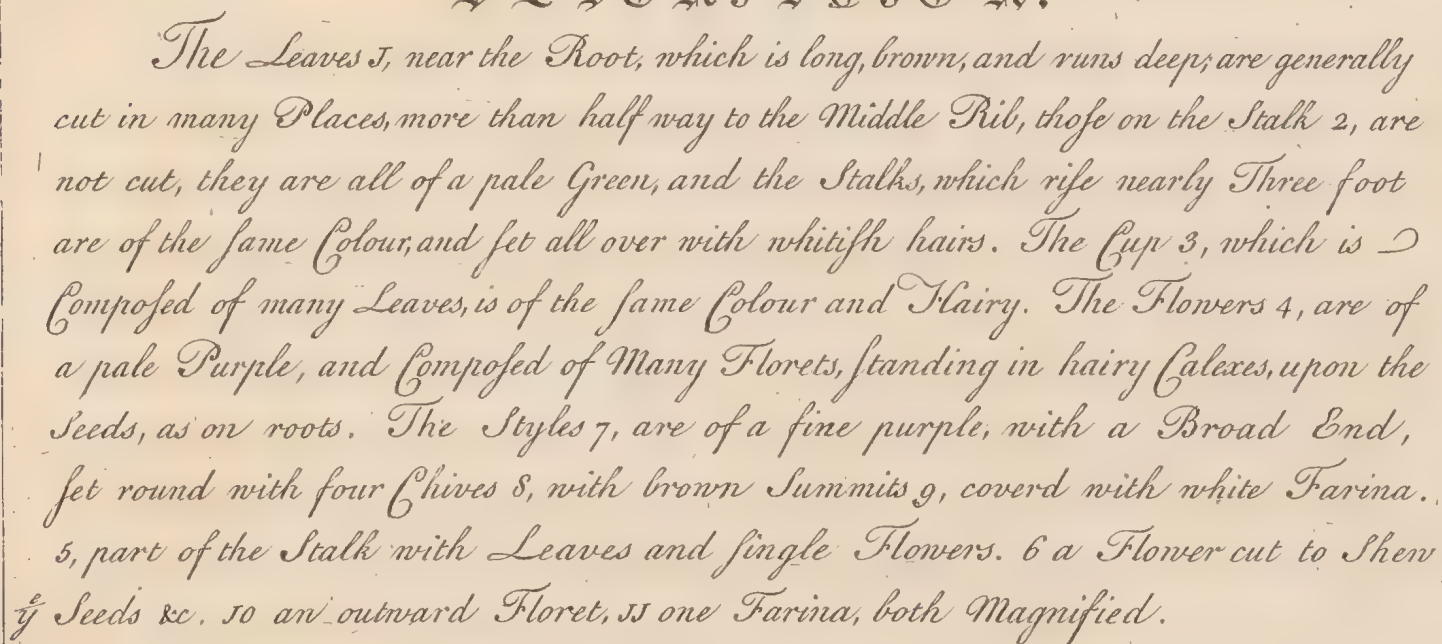 The Leaves 1, near the Root, which is long, brown, and runs deep; are generally
cut in many Places, more than half way to the Middle Rib, thoſe on the Stalk 2, are
not cut, they are all of a pale Green, and the Stalks, which riſe nearly Three foot
are of the ſame Colour, and ſet all over with whitiſh hairs. The Cup 3, which is
Compoſed of many Leaves, is of the ſame Colour and Hairy. The Flowers 4, are of
a pale Purple, and Compoſed of Many Florets, ſtanding in hairy Calexes, upon the
Seeds, as on roots. The Styles 7, are of a fine purple, with a Broad End,
ſet round with four Chives 8, with brown Summits 9, coverd with white Farina.
5, part of the Stalk with Leaves and ſingle Flowers. 6 a Flower cut to Shew
yᵉ Seeds &c. 10 an outward Floret, 11 one Farina, both Magnified.